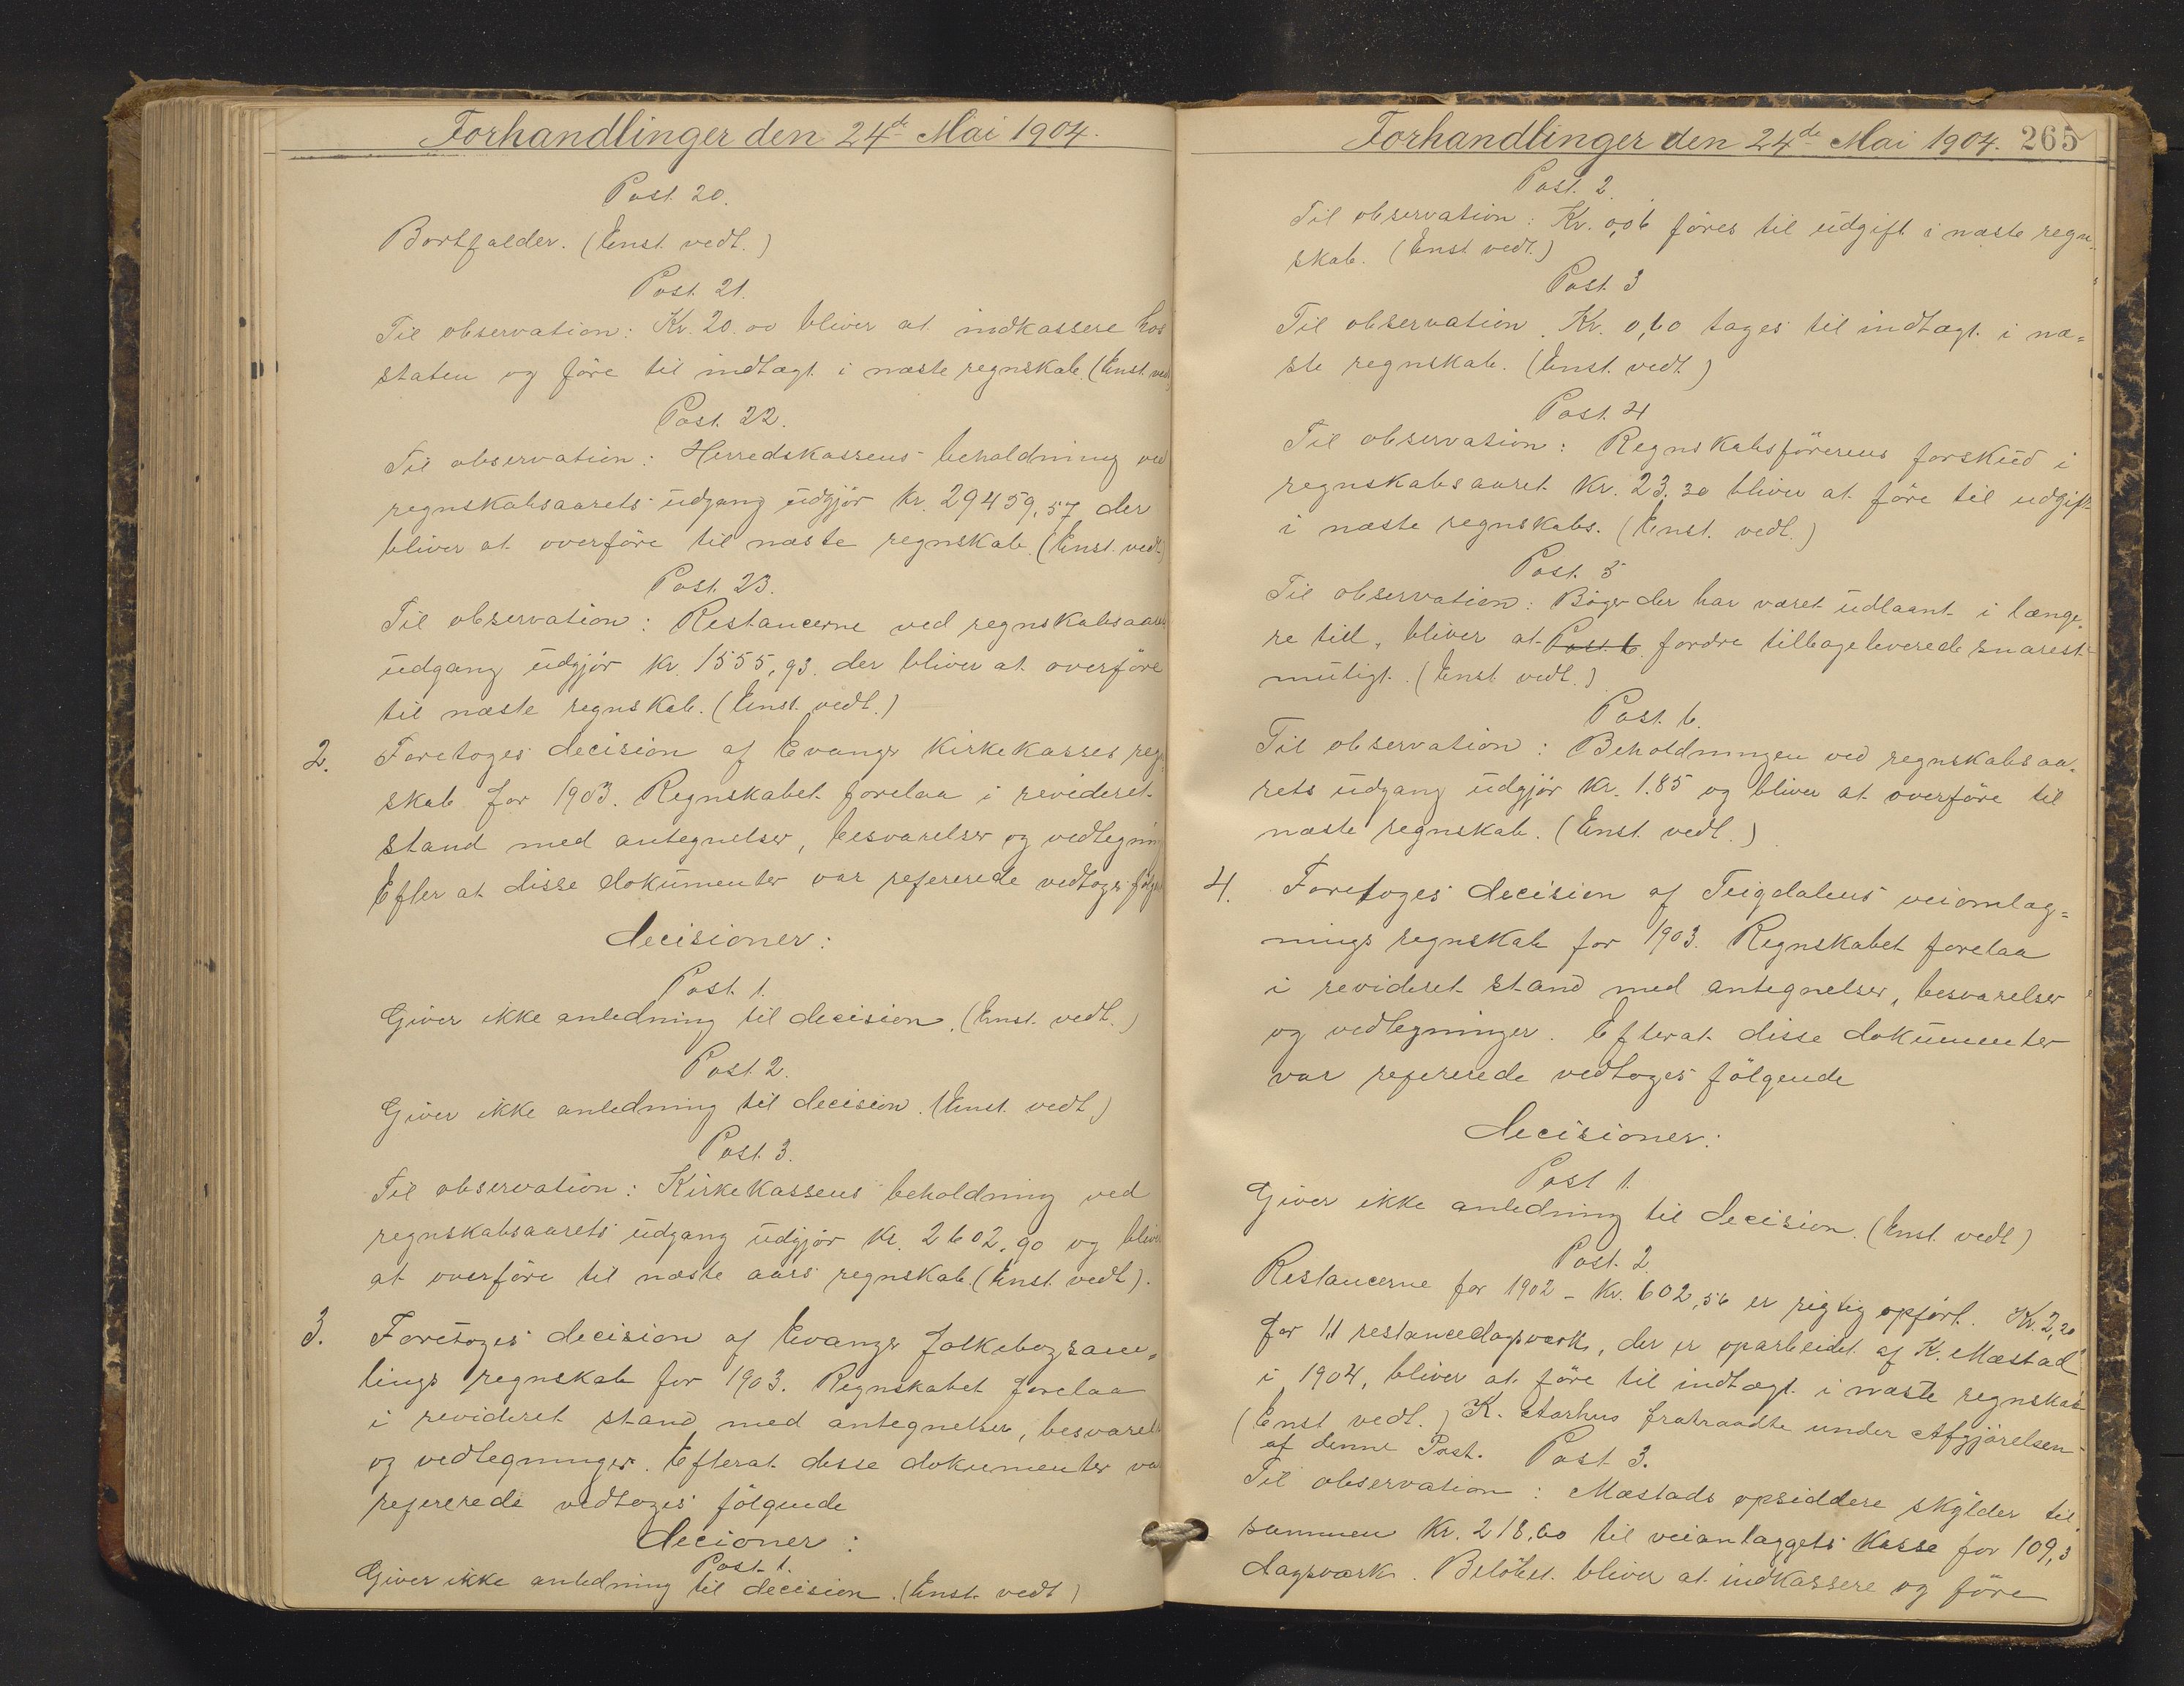 Forhandlinger den 24de Mai 1904.
Post. 20.
Bortfalder. (Enst. vedt.)
Post. 21.
Til observation: Kr. 20.00 bliver at indkassere hos
staten og före til indtægt i næste regnskab. (Enst. vedt.)
Post. 22.
Til observation: Herredskassens beholdning ved
regnskabsaarets udgang udgjör kr. 29459,57 der
bliver at overföre til næste regnskab. (Enst. vedt.)
Post. 23.
Til observation: Restancerne ved regnskabsaarets
udgang udgjör kr. 1555,93. der bliver at overföre
til næste regnskab. (Enst. vedt.)
2. Foretoges decision af Evanger kirkekasses regn-
skab for 1903. Regnskabet forelaa i revideret
stand med antegnelser, besvarelser og vedlegning
Efter at disse dokumenter var refererede vedtoges følgende
decisioner:
Post. 1.
Giver ikke anledning til decision. (Enst. vedt.)
Post 2.
Giver ikke anledning til decision. (Enst. vedt)
Post. 3.
Til observation: Kirkekassens beholdning ved
regnskabsaarets udgang udgjör kr. 2602,90 og bliver
at overföre til næste aars regnskab. (Enst. vedt).
3. Foretoges decision af Evanger folkebogsam-
lings regnskab for 1903. Regnskabet forelaa
i revideret stand med antegnelser, besvarelser
og vedlegninger. Efterat disse dokumenter var
refererede vedtoges fölgende
decioner:
Post. 1.
Giver ikke anledning til decision. (Enst. vedt)
Forhandlinger den 24de Mai 1904. 265
Post. 2
Til observation: Kr. 0,06 föres til udgift i næste regn-
skab. (Enst vedt.)
Post 3
Til observation. Kr. 0,60 tages til indtægt i næ=
ste regnskab. (Enst. vedt.)
Post. 4
Til observation: Regnskabsförerens forskud i
regnskabsaaret kr. 23,30 bliver at före til udgift
i næste regnskabs. (Enst. vedt.)
Post. 5
Til observation: Böger der har været udlaant i længe-
re tid, bliver at Post. 6. fordre tilbageleverede snarest
muligt. (Enst vedt.)
Post. 6.
Til observation: Beholdningen ved regnskabsaa-
rets udgang udgjör kr. 1.85 og bliver at overföre til
næste regnskab. (Enst. vedt.)
4. Foretoges decision af Teigdalens veiomlæg=
nings regnskab for 1903. Regnskabet forelaa
i revideret stand med antegnelser, besvarelser
og vedlegninger. Efterat disse dokumenter
var refererede vedtoges fölgende
decisioner:
Post 1.
Giver ikke anledning til decision. (Enst. vedt)
Post. 2.
Restancerne for 1902 - kr. 602,56 er rigtig opfört. Kr. 2,20
for 1,1 restancedagsværk, der er oparbeidet af K. Mæstad
i 1904, bliver at före til indtægt i næste regnskab
(Enst vedt.) K. Aarhus fratraadte under Afgjörelsen
af denne Post. Post 3.
Til observation: Mæstads opsiddere skylder til-
sammen kr. 218.60 til veianlæggets kasse for 109,3
dagsværk. Belöbet bliver at indkassere og före